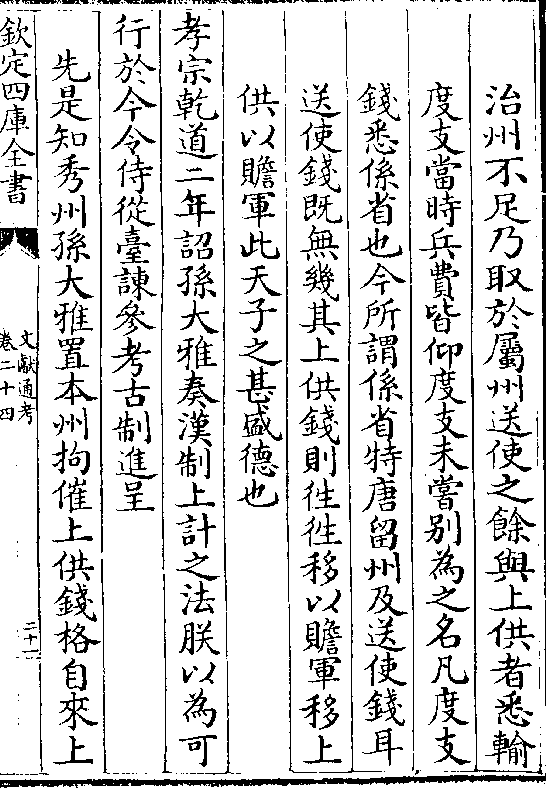 治州不足乃取於屬州送使之餘與上供者悉輸
度支當時兵費皆仰度支未嘗别為之名凡度支
錢悉係省也今所謂係省特唐留州及送使錢耳
送使錢既無幾其上供錢則徃徃移以贍軍移上
供以贍軍此天子之甚盛德也
孝宗乾道二年詔孫大雅奏漢制上計之法朕以為可
行於今令侍從臺諫參考古制進呈
先是知秀州孫大雅置本州拘催上供錢格自來上
欽定四庫全書
文獻通考
卷二十四
二十一